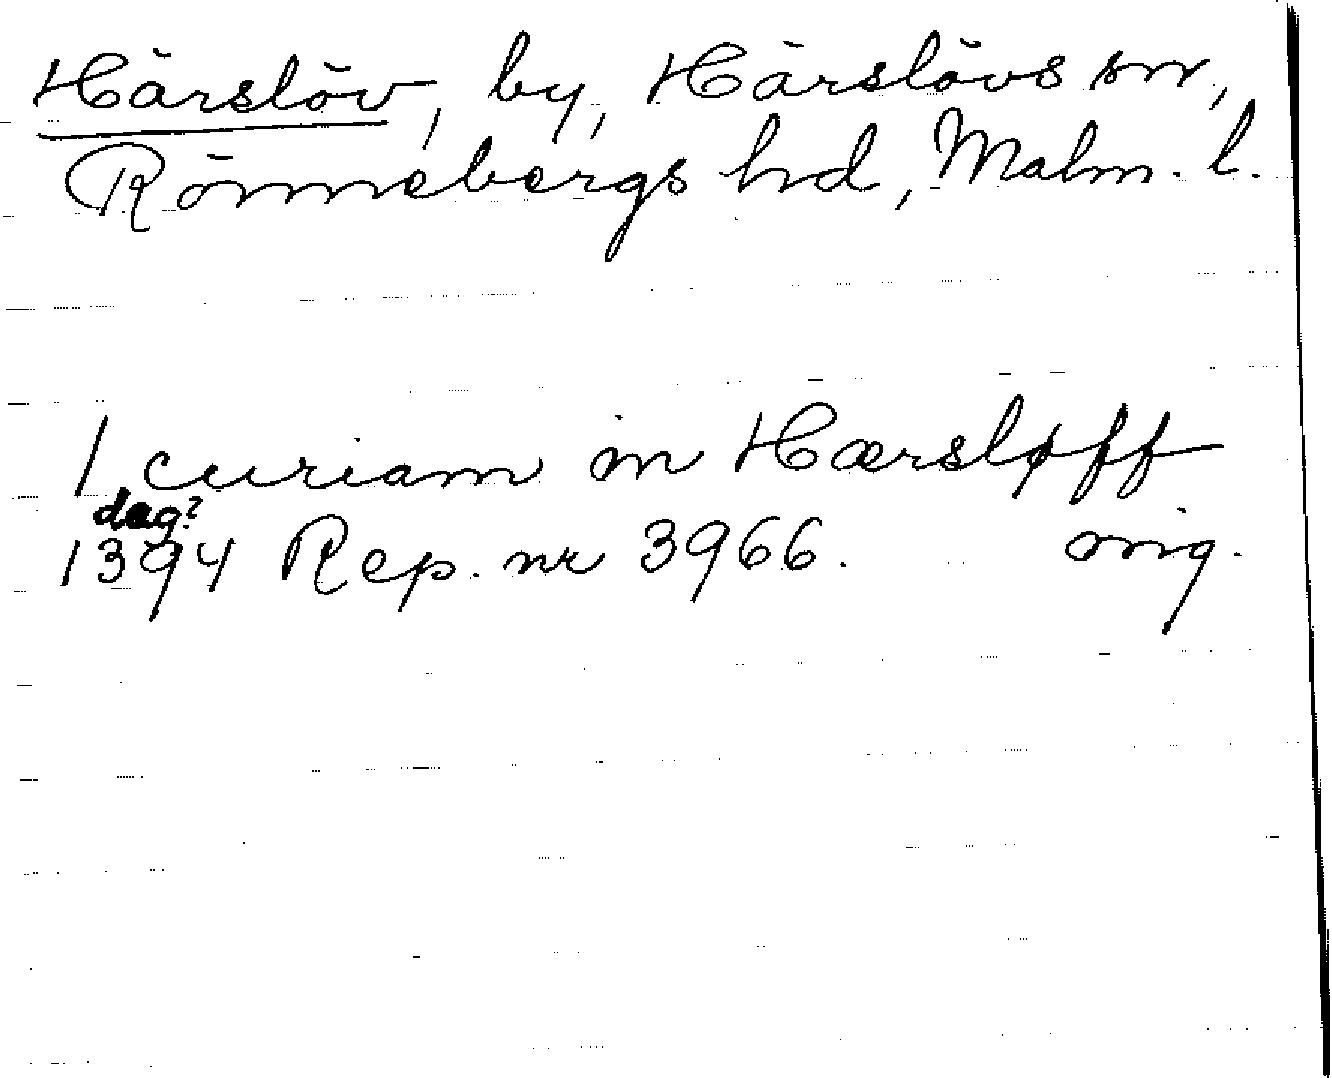 Härslöv, by, Härslövs sn,
Rönnebergs hd, Malm. l.
1 curiam in Hærsløff
dag?
1394 Rep. nr 3966. orig.